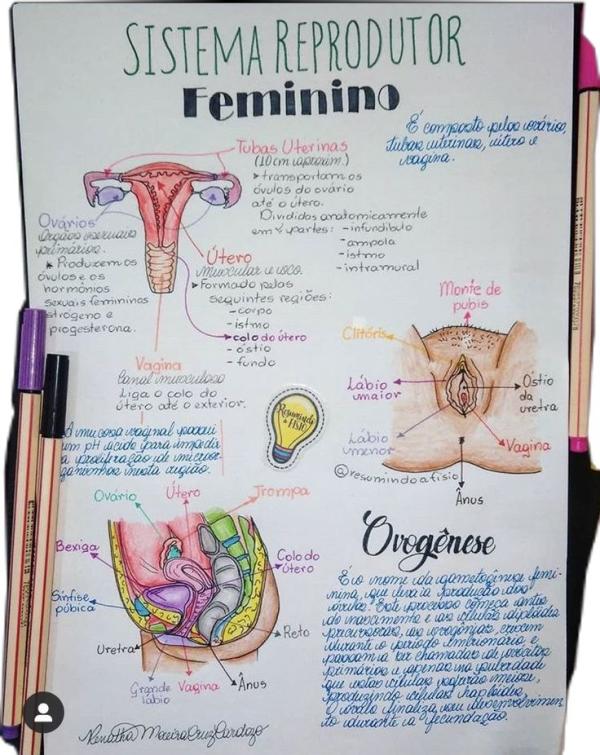 SISTEMA REPRODUTOR
Feminino
É composto pelos ovários,
tubas uterinas, útero e
vagina.
Tubas Uterinas
(10 cm aproxim.)
➤ transportam os
óvulos do ovário
até o útero.
Divididas anatomicamente
em 4 partes: - infundíbulo
- ampola
- istmo
- intramural
Ovários
Órgãos sexuais
primários.
➤ Produzem os
óvulos e os
hormônios
sexuais femininos
estrógeno e
progesterona.
Útero
Muscular e oco.
➤ Formado pelas
seguintes regiões:
- corpo
- istmo
➤ colo do útero
- óstio
- fundo
Vagina
Canal musculoso
Liga o colo do
útero até o exterior.
A mucosa vaginal possui
um pH ácido para impedir
a proliferação de micror-
ganismos nesta região.
Resumindo
a FISIO
Monte de
pubis
Clitóris
Lábio
maior
Óstio
da
uretra
Lábio
menor
Vagina
@resumindoafisio
Ânus
Ovário
Útero
Trompa
Bexiga
Colo do
útero
Sínfise
púbica
Uretra
Reto
Grande
lábio
Vagina
Ânus
Ovogênese
É o nome da gametogênese femi-
nina, que leva a produção dos
óvulos. Este processo começa antes
do nascimento e as células
precursoras, as ovogônias, crescem
durante o período embrionário e
passam a ser chamadas de ovócitos
primários e apenas na puberdade
que estas células sofrerão meiose,
produzindo células haploides,
o óvulo finaliza seu desenvolvimen-
to durante a fecundação.
Renatha Moreira Cruz Cardozo